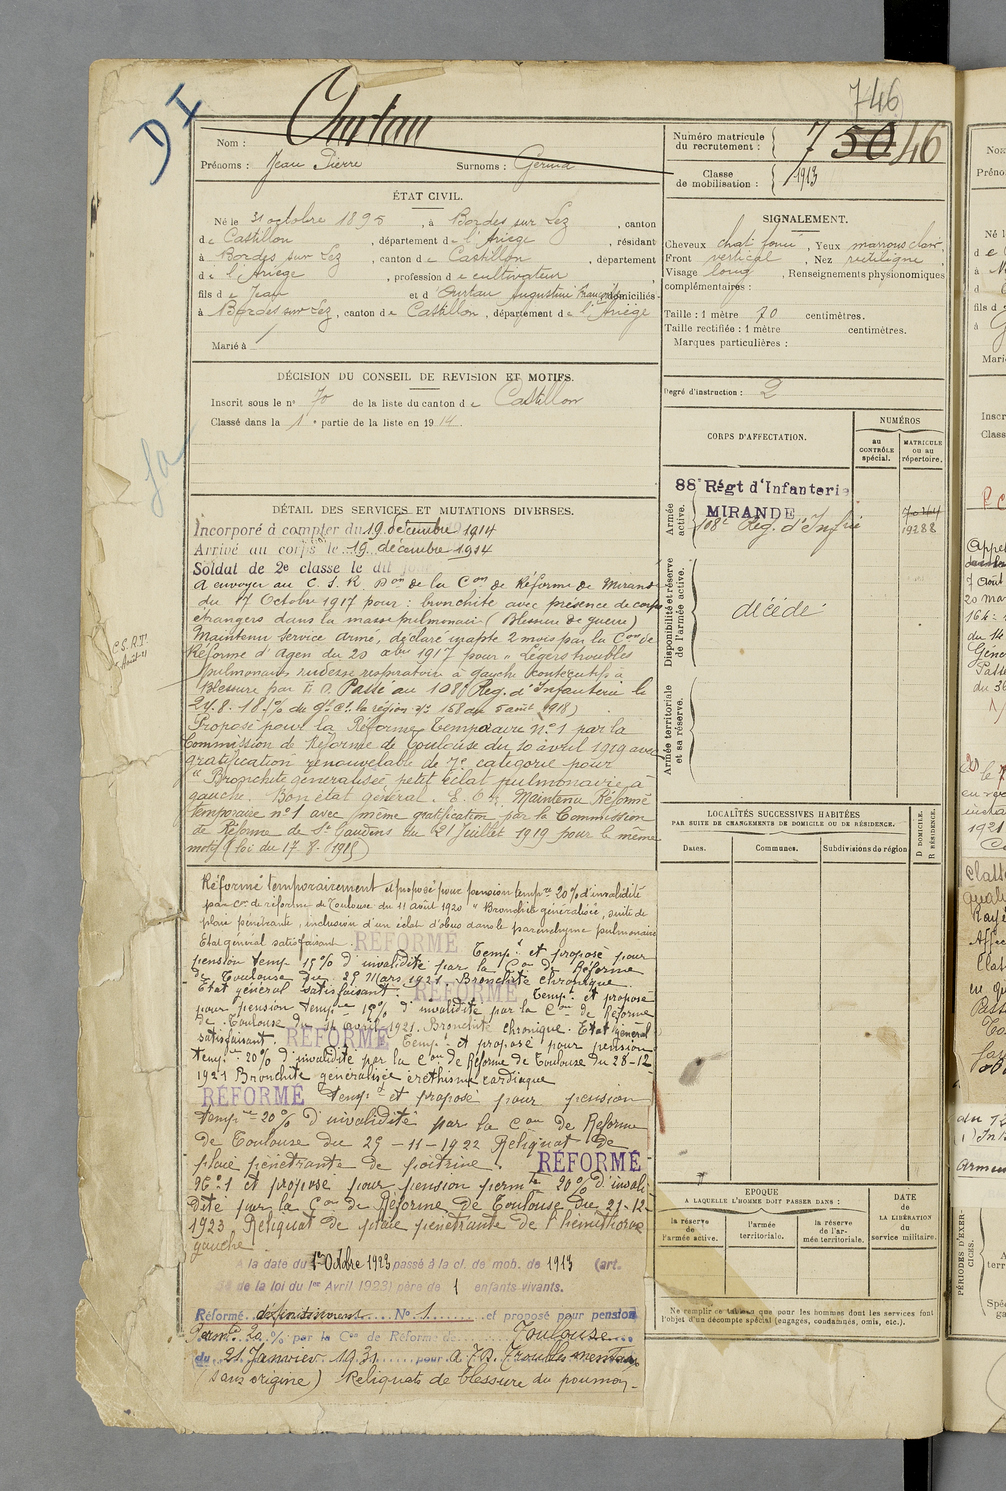 746
DI
Nom : Ourtau
Prénoms : Jean Pierre Surnoms : Germa
Numéro matricule
du recrutement : 7 50 46
Classe
de mobilisation : 1913
ÉTAT CIVIL.
Né le 31 octobre 1895, à Bordes sur Lez, canton
de Castillon, département de l'Ariège, résidant
à Bordes sur Lez, canton de Castillon, département
de l'Ariège, profession de cultivateur
fils de Jean et d' Ourtau Augustine Françoise domiciliés
à Bordes sur Lez, canton de Castillon, département de l'Ariège
Marié à
SIGNALEMENT.
Cheveux chat. foncé, Yeux marrons clair,
Front vertical, Nez rectiligne,
Visage long, Renseignements physionomiques
complémentaires :
Taille : 1 mètre 70 centimètres.
Taille rectifiée : 1 mètre centimètres.
Marques particulières :
Degré d'instruction : 2
DÉCISION DU CONSEIL DE REVISION ET MOTIFS.
Inscrit sous le n° 70 de la liste du canton de Castillon
Classé dans la 1e partie de la liste en 1914.
CORPS D'AFFECTATION.
NUMÉROS
au
CONTRÔLE
spécial.
MATRICULE
ou au
répertoire.
Armée
active.
88e Régt d'Infanterie
MIRANDE
108e Rég. d'Infrie
19288
Disponibilité et réserve
de l'armée active.
décédé
Armée territoriale
et sa réserve.
DÉTAIL DES SERVICES ET MUTATIONS DIVERSES.
Incorporé à compter du 19 décembre 1914
Arrivé au corps le 19 décembre 1914
Soldat de 2e classe le dit jour
A envoyer au C. S. R. Don de la Con de Réforme de Mirande
du 17 Octobre 1917 pour : bronchite avec présence de corps
étrangers dans la masse pulmonaire (Blessure de guerre)
Maintenu Service armé, déclaré inapte 2 mois par la Con de
Réforme d'Agen du 20 Xbre 1917 pour " Légers troubles
pulmonaires rudesse respiratoire à gauche consécutifs à
Blessure par E. O. Passé au 108e Rég. d'Infanterie le
Proposé pour la Réforme Temporaire n° 1 par la
Commission de Réforme de Toulouse du 10 avril 1919 avec
gratification renouvelable de 7e catégorie pour
" Bronchite généralisée petit éclat pulmonaire à
gauche. Bon état général. Maintenu Réformé
temporaire n° 1 avec même gratification par la Commission
de Réforme de St Gaudens du 21 Juillet 1919 pour le même
motif (loi du 17.8.1915)
Réformé temporairement et proposé pour pension tempre 20% d'invalidité
par Con de réforme de Toulouse du 11 août 1920 " Bronchite généralisée, suite de
plaie pénétrante, inclusion d'un éclat d'obus dans le parenchyme pulmonaire
Etat général satisfaisant. RÉFORMÉ Tempt et proposé pour
pension temp 15% d'invalidité par la Con de Réforme
de Toulouse du 29 Mars 1921. Bronchite chronique.
Etat général satisfaisant RÉFORMÉ Tempt et proposé
pour pension tempre 15% d'invalidité par la Con de Réforme
de Toulouse du avril 1921. Bronchite chronique. Etat général
satisfaisant. RÉFORMÉ Tempt et proposé pour pension
tempre 20% d'invalidité par la Con de Réforme de Toulouse du 28-12
1921 Bronchite généralisée éréthisme cardiaque
RÉFORMÉ Tempt et proposé pour pension
tempre 20% d'invalidité par la Con de Réforme
de Toulouse du 29-11-1922 Reliquat de
plaie pénétrante de poitrine. RÉFORMÉ
N° 1 et proposé pour pension permte 20% d'invali-
dité par la Con de Réforme de Toulouse du 21-12-
1923 Reliquat de plaie pénétrante de l'hémithorax
gauche
A la date du 1er Octobre 1923 passé à la cl. de mob. de 1913 (art.
58 de la loi du 1er Avril 1923) père de 1 enfants vivants.
Réformé définitivement N° 1 et proposé pour pension
Permte 20 % par la Con de Réforme de Toulouse
du 21 Janvier 1931 pour Troubles mentaux
(sans origine) Reliquats de blessure du poumon
LOCALITÉS SUCCESSIVES HABITÉES
PAR SUITE DE CHANGEMENTS DE DOMICILE OU DE RÉSIDENCE.
Dates. Communes. Subdivisions de région
D DOMICILE.
R RÉSIDENCE.
ÉPOQUE
A LAQUELLE L'HOMME DOIT PASSER DANS :
la réserve
de
l'armée active.
l'armée
territoriale.
la réserve
de l'ar-
mée territoriale.
DATE
de
LA LIBÉRATION
du
service militaire.
Ne remplir ce tableau que pour les hommes dont les services font
l'objet d'un décompte spécial (engagés, condamnés, omis, etc.).
PÉRIODES D'EXER-
CICES.